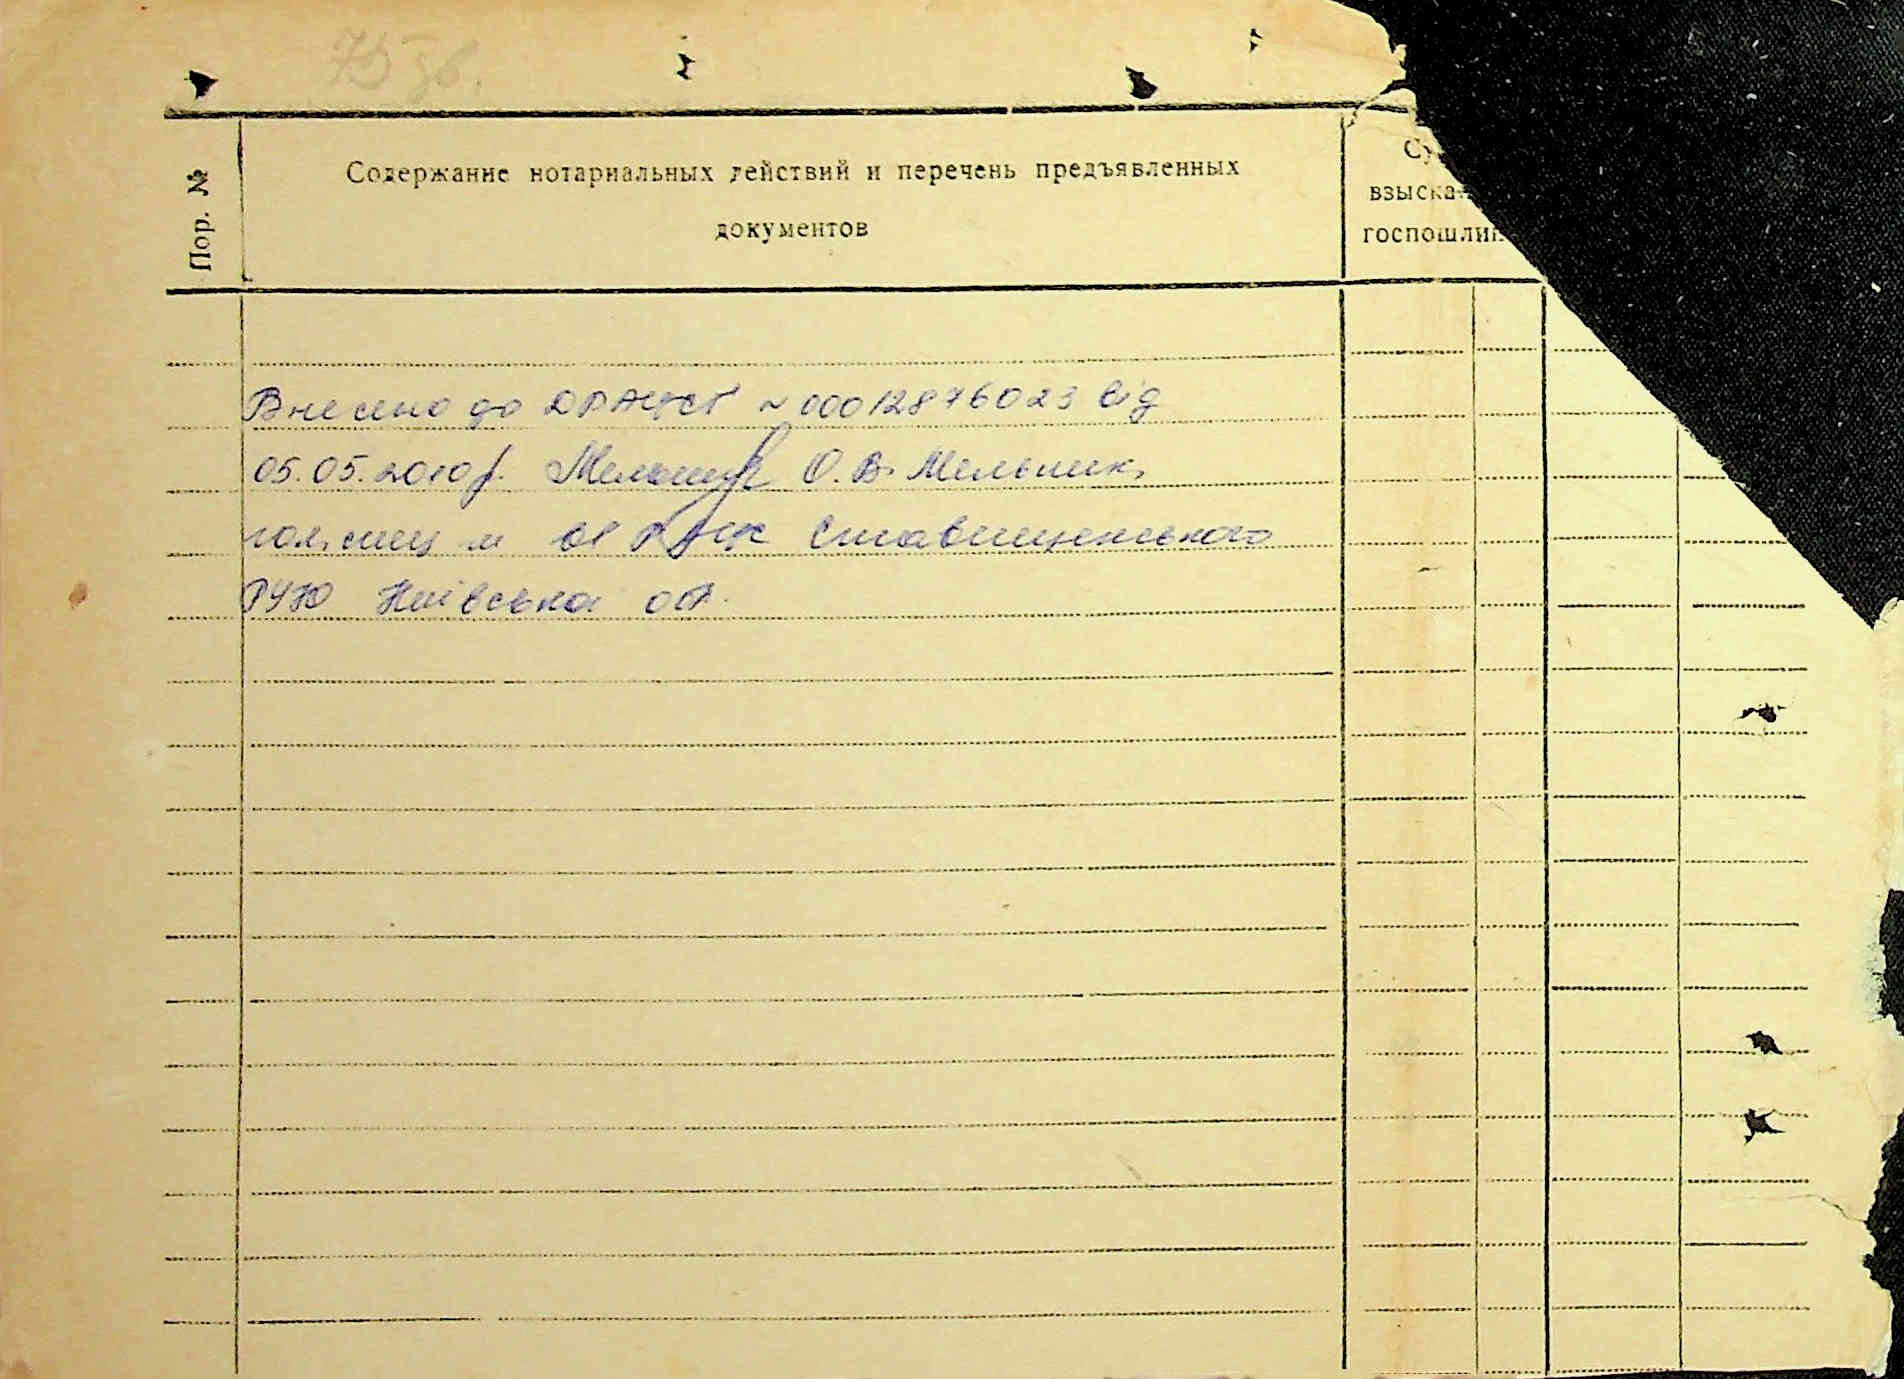 75 зв.
Пор. №
Содержание нотариальных действий и перечень предъявленных
документов
взыска
госпошлин
Внесено до ДРАЦСГ ~ 00012876023 від
05.05.2010р. О.В. Мельник,
гол. спец ВІ РАЦС Ставищенського
РУЮ Київська обл.